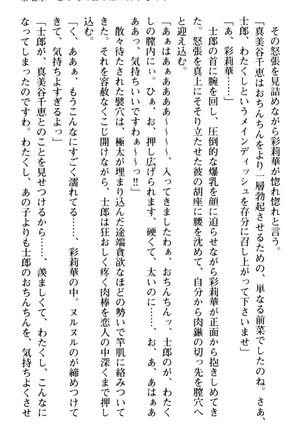 の怒張を見詰めながら彩莉華が惚れ惚れと言う。
「真美谷千恵はおちんちんをより一層勃起させるための、単なる前菜でしたの。さあ、
士郎、わたくしというメインディッシュを存分に召し上がって下さいませ」
「あ、彩莉華……」
士郎の首に腕を回し、圧倒的な爆乳を顔に迫らせながら彩莉華が正面から抱きしめて
きた。怒張を真上にそそり立たせた彼の胡座に腰を沈めて、自分から肉鏃の切っ先を膣穴へ
と迎え込む。
「あぁはぁぁああぁ～～～し、入ってきましたわぁ、おちんちんッ、士郎のが、わたく
しの膣内に。ひぁ、お、押し広げられます、硬くて、太いのに……、お、あ、はぁぁあ
ああっ、気持ちいいですわぁ～～～っ！」
散々待たされた襞穴は、極太が埋まり込んだ途端貪欲なほどの勢いで竿肌に絡みついて
きた。それを容赦なくこじ開けながら、士郎は狂おしく疼く肉棒を恋人の中深くまで押し
込む。
「くぁ、あぁぁ、もうこんなにすごく濡れてる……、彩莉華の中。ヌルヌルのが締めつけて
きて、気持ちよすぎるよっ」
「士郎が、真美谷千恵とのことを見せつけるから……、羨ましくて、わたくし、こんなに
なってしまったのですわ。わたくし、あの子よりも士郎のおちんちんを、気持ちよくさせ